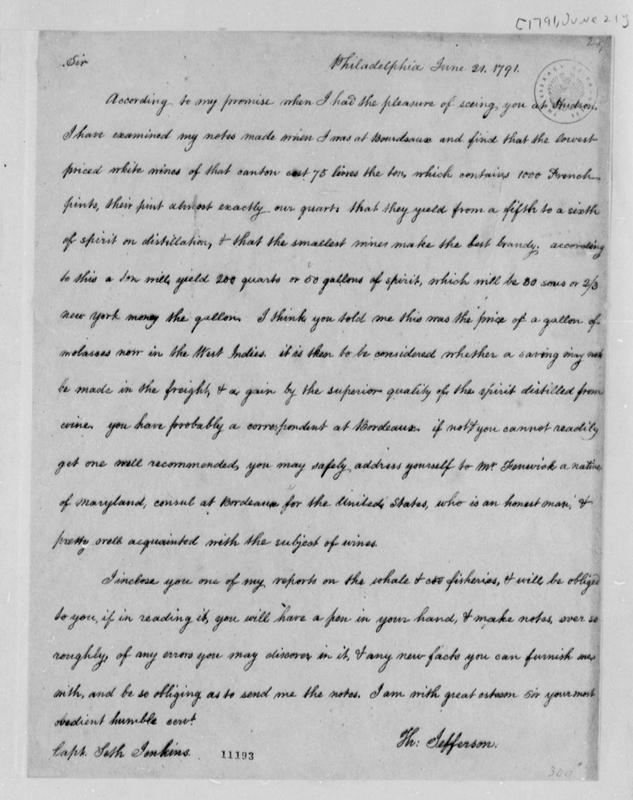 [1791, June 21]
Sir
Philadelphia June 21. 1791.
According to my promise when I had the pleasure of seeing you at Hudson.
I have examined my notes made when I was at Bourdeaux and find that the lowest
priced white wines of that canton cost 75 livres the ton, which contains 1000 French
pints, their pint almost exactly our quart: that they yield from a fifth to a sixth
of spirit on distillation, & that the smallest wines make the best brandy. according
to this a ton will yield 200 quarts or 50 gallons of spirit, which will be 30 sous or 2/3
new york money the gallon. I think you told me this was the price of a gallon of
molasses now in the West Indies. it is then to be considered whether a saving may not
be made in the freight, & a gain by the superior quality of the spirit distilled from
wine. you have probably a correspondent at Bordeaux. if not & you cannot readily
get one well recommended, you may safely address yourself to Mr. Fenwick a native
of Maryland, consul at Bordeaux for the United States, who is an honest man, &
pretty well acquainted with the subject of wines.
I inclose you one of my reports on the whale & cod fisheries, & will be obliged
to you, if in reading it, you will have a pen in your hand, & make notes, ever so
roughly, of any errors you may discover in it, & any new facts you can furnish me
with, and be so obliging as to send me the notes. I am with great esteem Sir your most
obedient humble servt.
Th: Jefferson.
Capt. Seth Jenkins.
11193